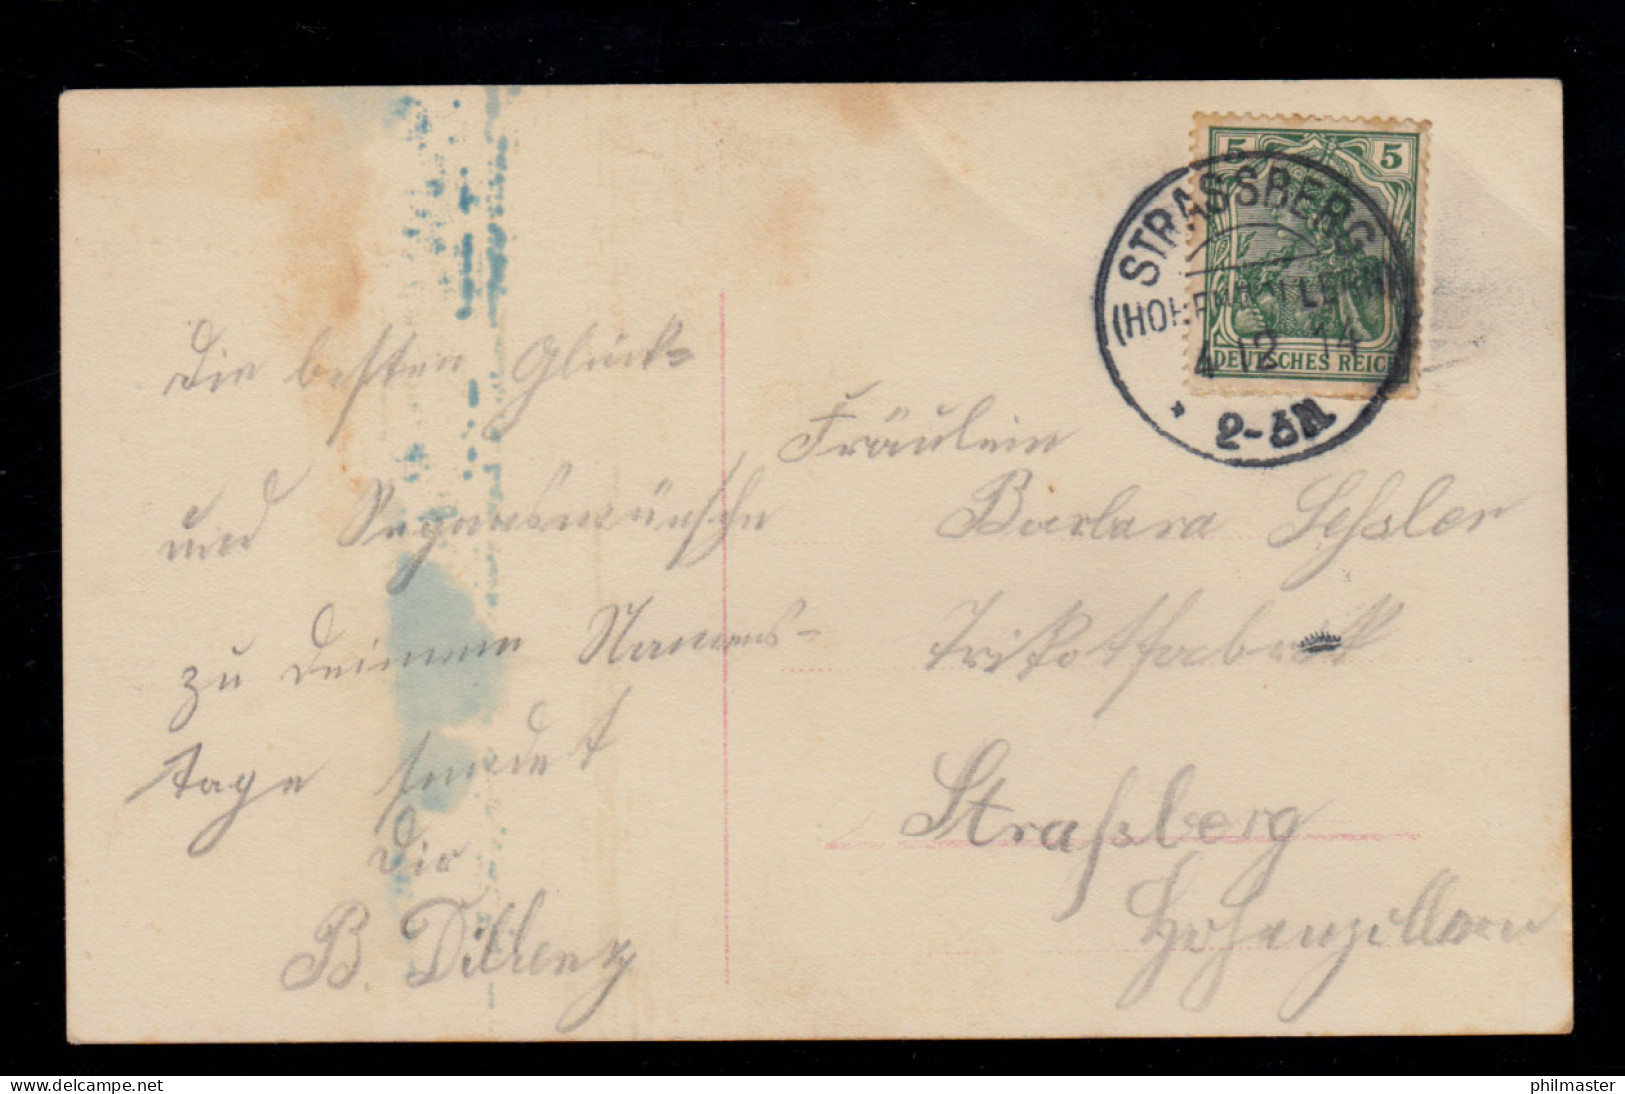 Die besten Glück=
und Segenswünsche
zu Deinem Namens=
tage sendet
Dir
B. Dillenz
5 5
DEUTSCHES REICH
STRASSBERG
(HOHENZOLLERN)
4 12 14
2-3N.
Fräulein
Barbara Seßler
Trikotfabrik
Straßberg
Hohenzollern
delcampe.net
philmaster